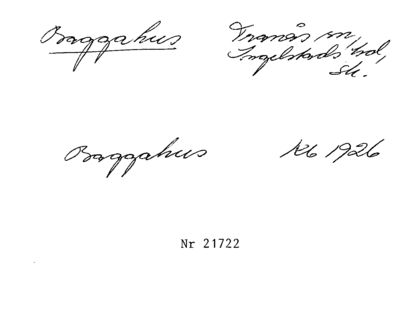 Baggahus Tranås sn,
Ingelstads hd,
Sk.
Baggahus Kb 1926
Nr 21722